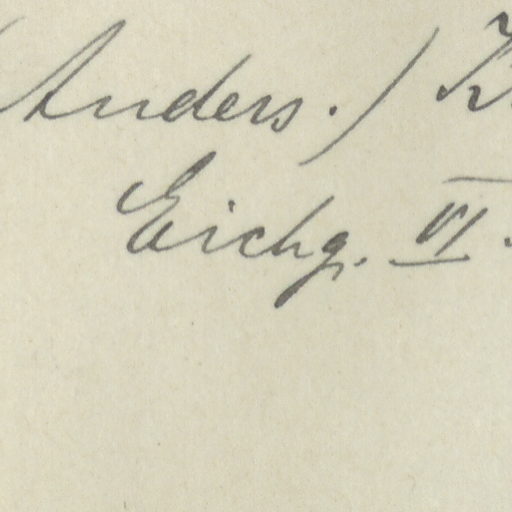 (Anders.) K
Eichg. VI.